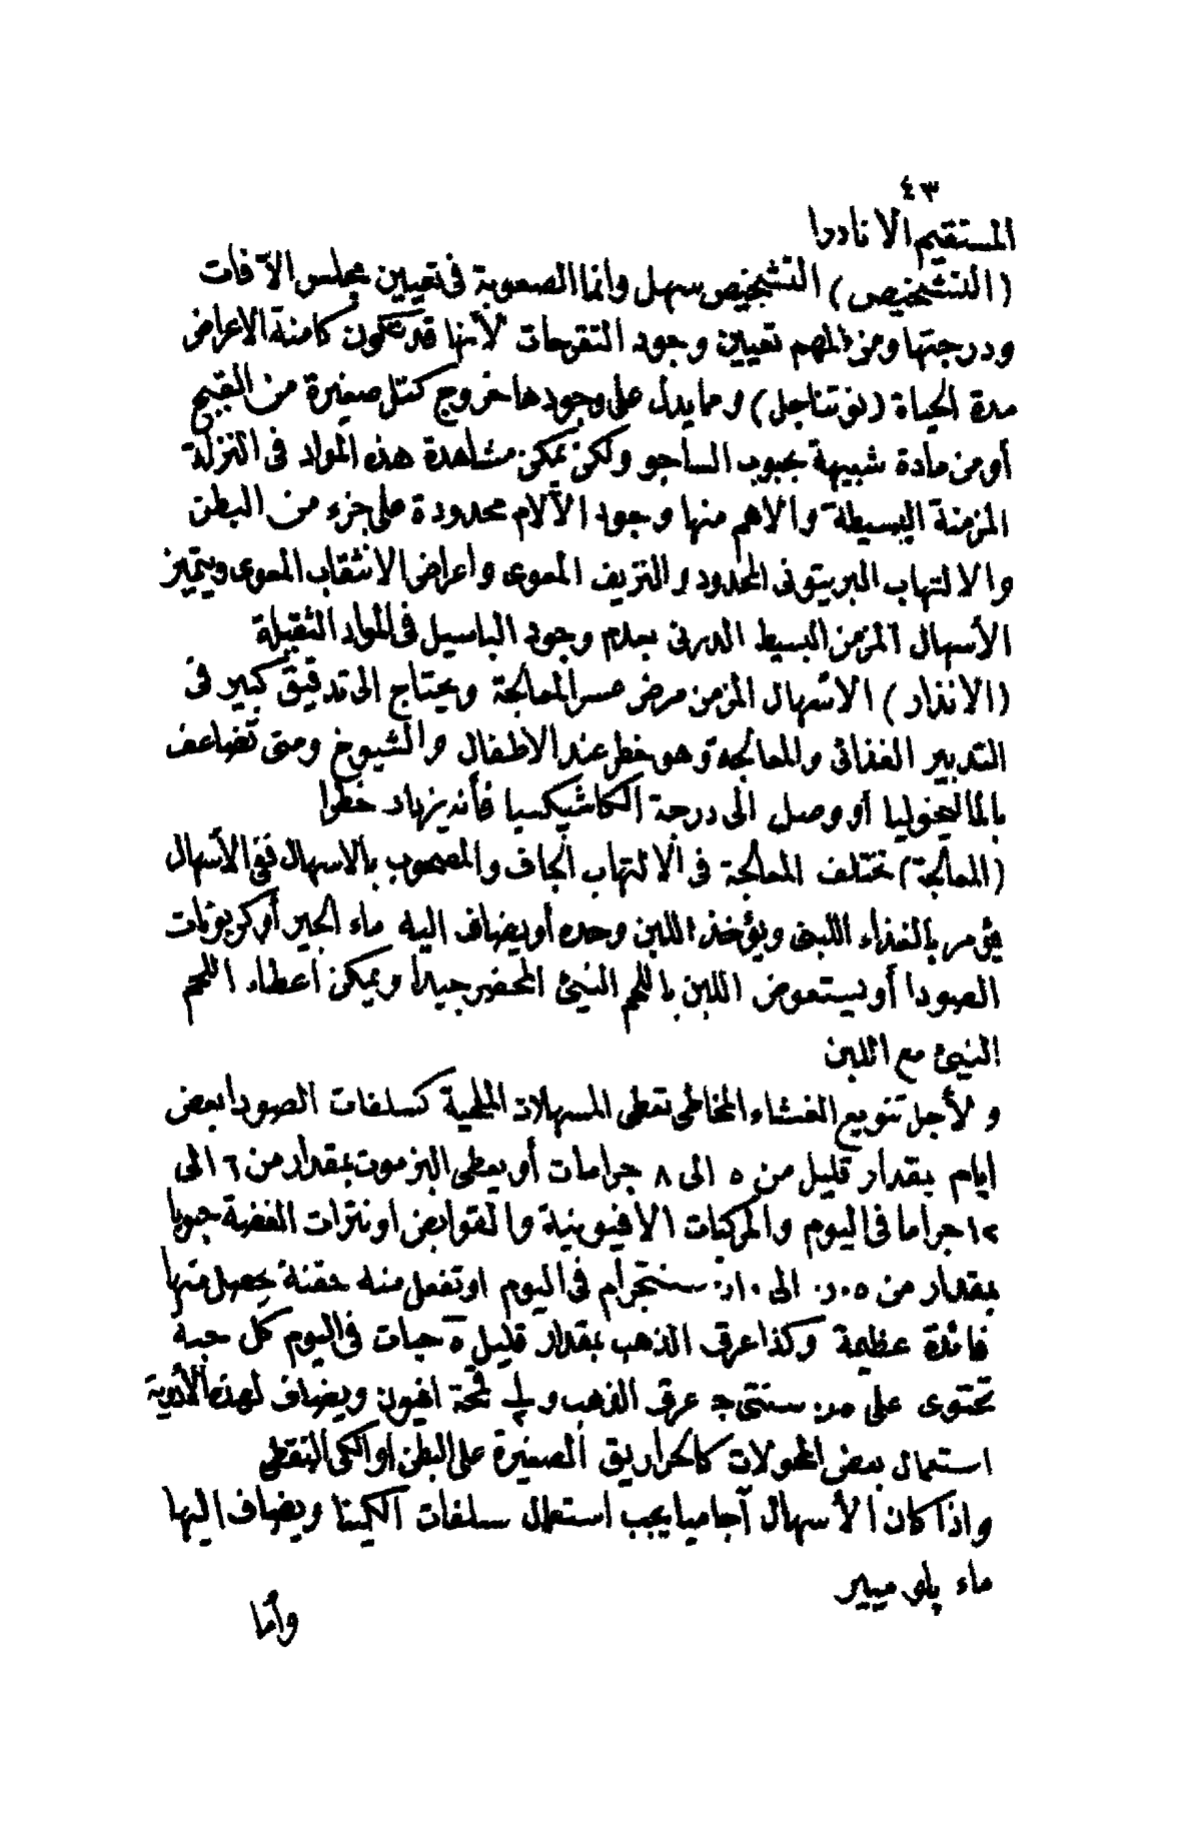 ٤٣
المستقيم الا نادرا
(التشخيص) التشخيص سهل وانما الصعوبة فى تعيين مجلس الآفات
ودرجتها ومن المهم تعيين وجود التقرحات لأنها قد تكون كامنة الاعراض
مدة الحياة (نوتناجل) ومما يدل على وجودها خروج كتل صغيرة من القيح
أو من مادة شبيهة بحبوب الساجو ولكن يمكن مشاهدة هذه المواد فى النزلة
المزمنة البسيطة والاهم منها وجود الآلام محدودة على جزء من البطن
والالتهاب البريتونى المحدود والنزيف المعوى واعراض الانثقاب المعوى ويتميز
الأسهال المزمن البسيط الدرنى بعدم وجود الباسيل فى المواد الثفيلة
(الانذار) الاسهال المزمن مرض عسر المعالجة ويحتاج الى تدقيق كبير فى
التدبير الغذائى والمعالجة وهو خطر عند الاطفال والشيوخ ومتى تضاعف
بالمالينخوليا أو وصل الى درجة الكاشيكسيا فأنه يزداد خطرا
(المعالجة) تختلف المعالجة فى الالتهاب الجاف والمصحوب بالاسهال ففى الأسهال
يؤمر بالغذاء اللبنى ويؤخذ اللبن وحده أو يضاف اليه ماء الجير أو كربونات
الصودا أو يستعوض اللبن باللحم النيئ المحضر جيدا ويمكن اعطاء اللحم
النيئ مع اللبن
ولأجل تنويع الغشاء المخاطى تعطى المسهلات الملحية كسلفات الصودا بعض
ايام بمقدار قليل من ٥ الى ٨ جرامات أو يعطى البزموت بمقدار من ٦ الى
١٢ جراما فى اليوم والمركبات الأفيونية والقوابض او نترات الفضة حبوبا
بمقدار من ٠٥ر٠ الى ١٠ر٠ سنتجرام فى اليوم او تفعل منه حقنة يحصل منها
فائدة عظيمة وكذا عرق الذهب بمقدار قليل ٥ حبات فى اليوم كل حبة
تحتوى على سنتى جـ عرق الذهب و قمحة افيون ويضاف لهذه الأدوية
استعمال بعض المحولات كالحراريق الصغيرة على البطن او الكى النقطى
واذا كان الأسهال آجاميا يجب استعمال سلفات الكينا ويضاف اليها
ماء پلومبيير
وأما